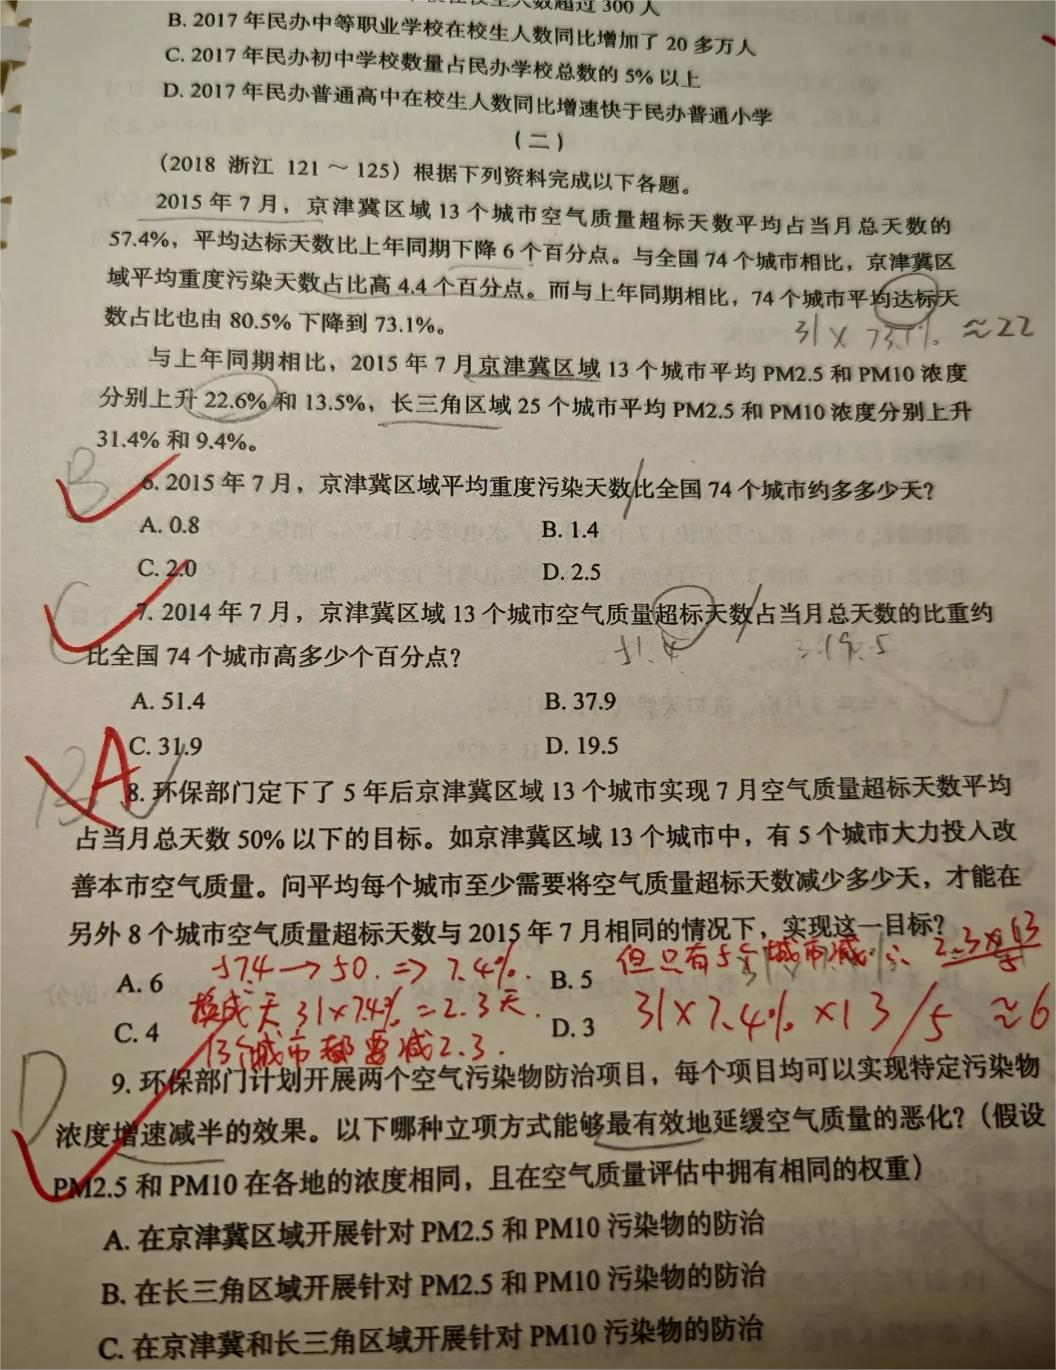 在校生人数超过 300 人
B. 2017 年民办中等职业学校在校生人数同比增加了 20 多万人
C. 2017 年民办初中学校数量占民办学校总数的 5% 以上
D. 2017 年民办普通高中在校生人数同比增速快于民办普通小学
（二）
（2018 浙江 121～125）根据下列资料完成以下各题。
2015 年 7 月，京津冀区域 13 个城市空气质量超标天数平均占当月总天数的
57.4%，平均达标天数比上年同期下降 6 个百分点。与全国 74 个城市相比，京津冀区
域平均重度污染天数占比高 4.4 个百分点。而与上年同期相比，74 个城市平均达标天
数占比也由 80.5% 下降到 73.1%。
31×73.1% ≈22
与上年同期相比，2015 年 7 月京津冀区域 13 个城市平均 PM2.5 和 PM10 浓度
分别上升 22.6% 和 13.5%，长三角区域 25 个城市平均 PM2.5 和 PM10 浓度分别上升
31.4% 和 9.4%。
B
6. 2015 年 7 月，京津冀区域平均重度污染天数比全国 74 个城市约多多少天？
A. 0.8 B. 1.4
C. 2.0 D. 2.5
C
7. 2014 年 7 月，京津冀区域 13 个城市空气质量超标天数占当月总天数的比重约
比全国 74 个城市高多少个百分点？
51.4 19.5
A. 51.4 B. 37.9
C. 31.9 D. 19.5
B A
8. 环保部门定下了 5 年后京津冀区域 13 个城市实现 7 月空气质量超标天数平均
占当月总天数 50% 以下的目标。如京津冀区域 13 个城市中，有 5 个城市大力投入改
善本市空气质量。问平均每个城市至少需要将空气质量超标天数减少多少天，才能在
另外 8 个城市空气质量超标天数与 2015 年 7 月相同的情况下，实现这一目标？
A. 6 B. 5
57.4→50. ⇒ 7.4%.
但只有5个城市减 ∴ 2.3×13/5
C. 4 D. 3
换成天 31×7.4%=2.3天.
13个城市都要减2.3.
31×7.4%×13/5≈6
D
9. 环保部门计划开展两个空气污染物防治项目，每个项目均可以实现特定污染物
浓度增速减半的效果。以下哪种立项方式能够最有效地延缓空气质量的恶化？（假设
PM2.5 和 PM10 在各地的浓度相同，且在空气质量评估中拥有相同的权重）
A. 在京津冀区域开展针对 PM2.5 和 PM10 污染物的防治
B. 在长三角区域开展针对 PM2.5 和 PM10 污染物的防治
C. 在京津冀和长三角区域开展针对 PM10 污染物的防治